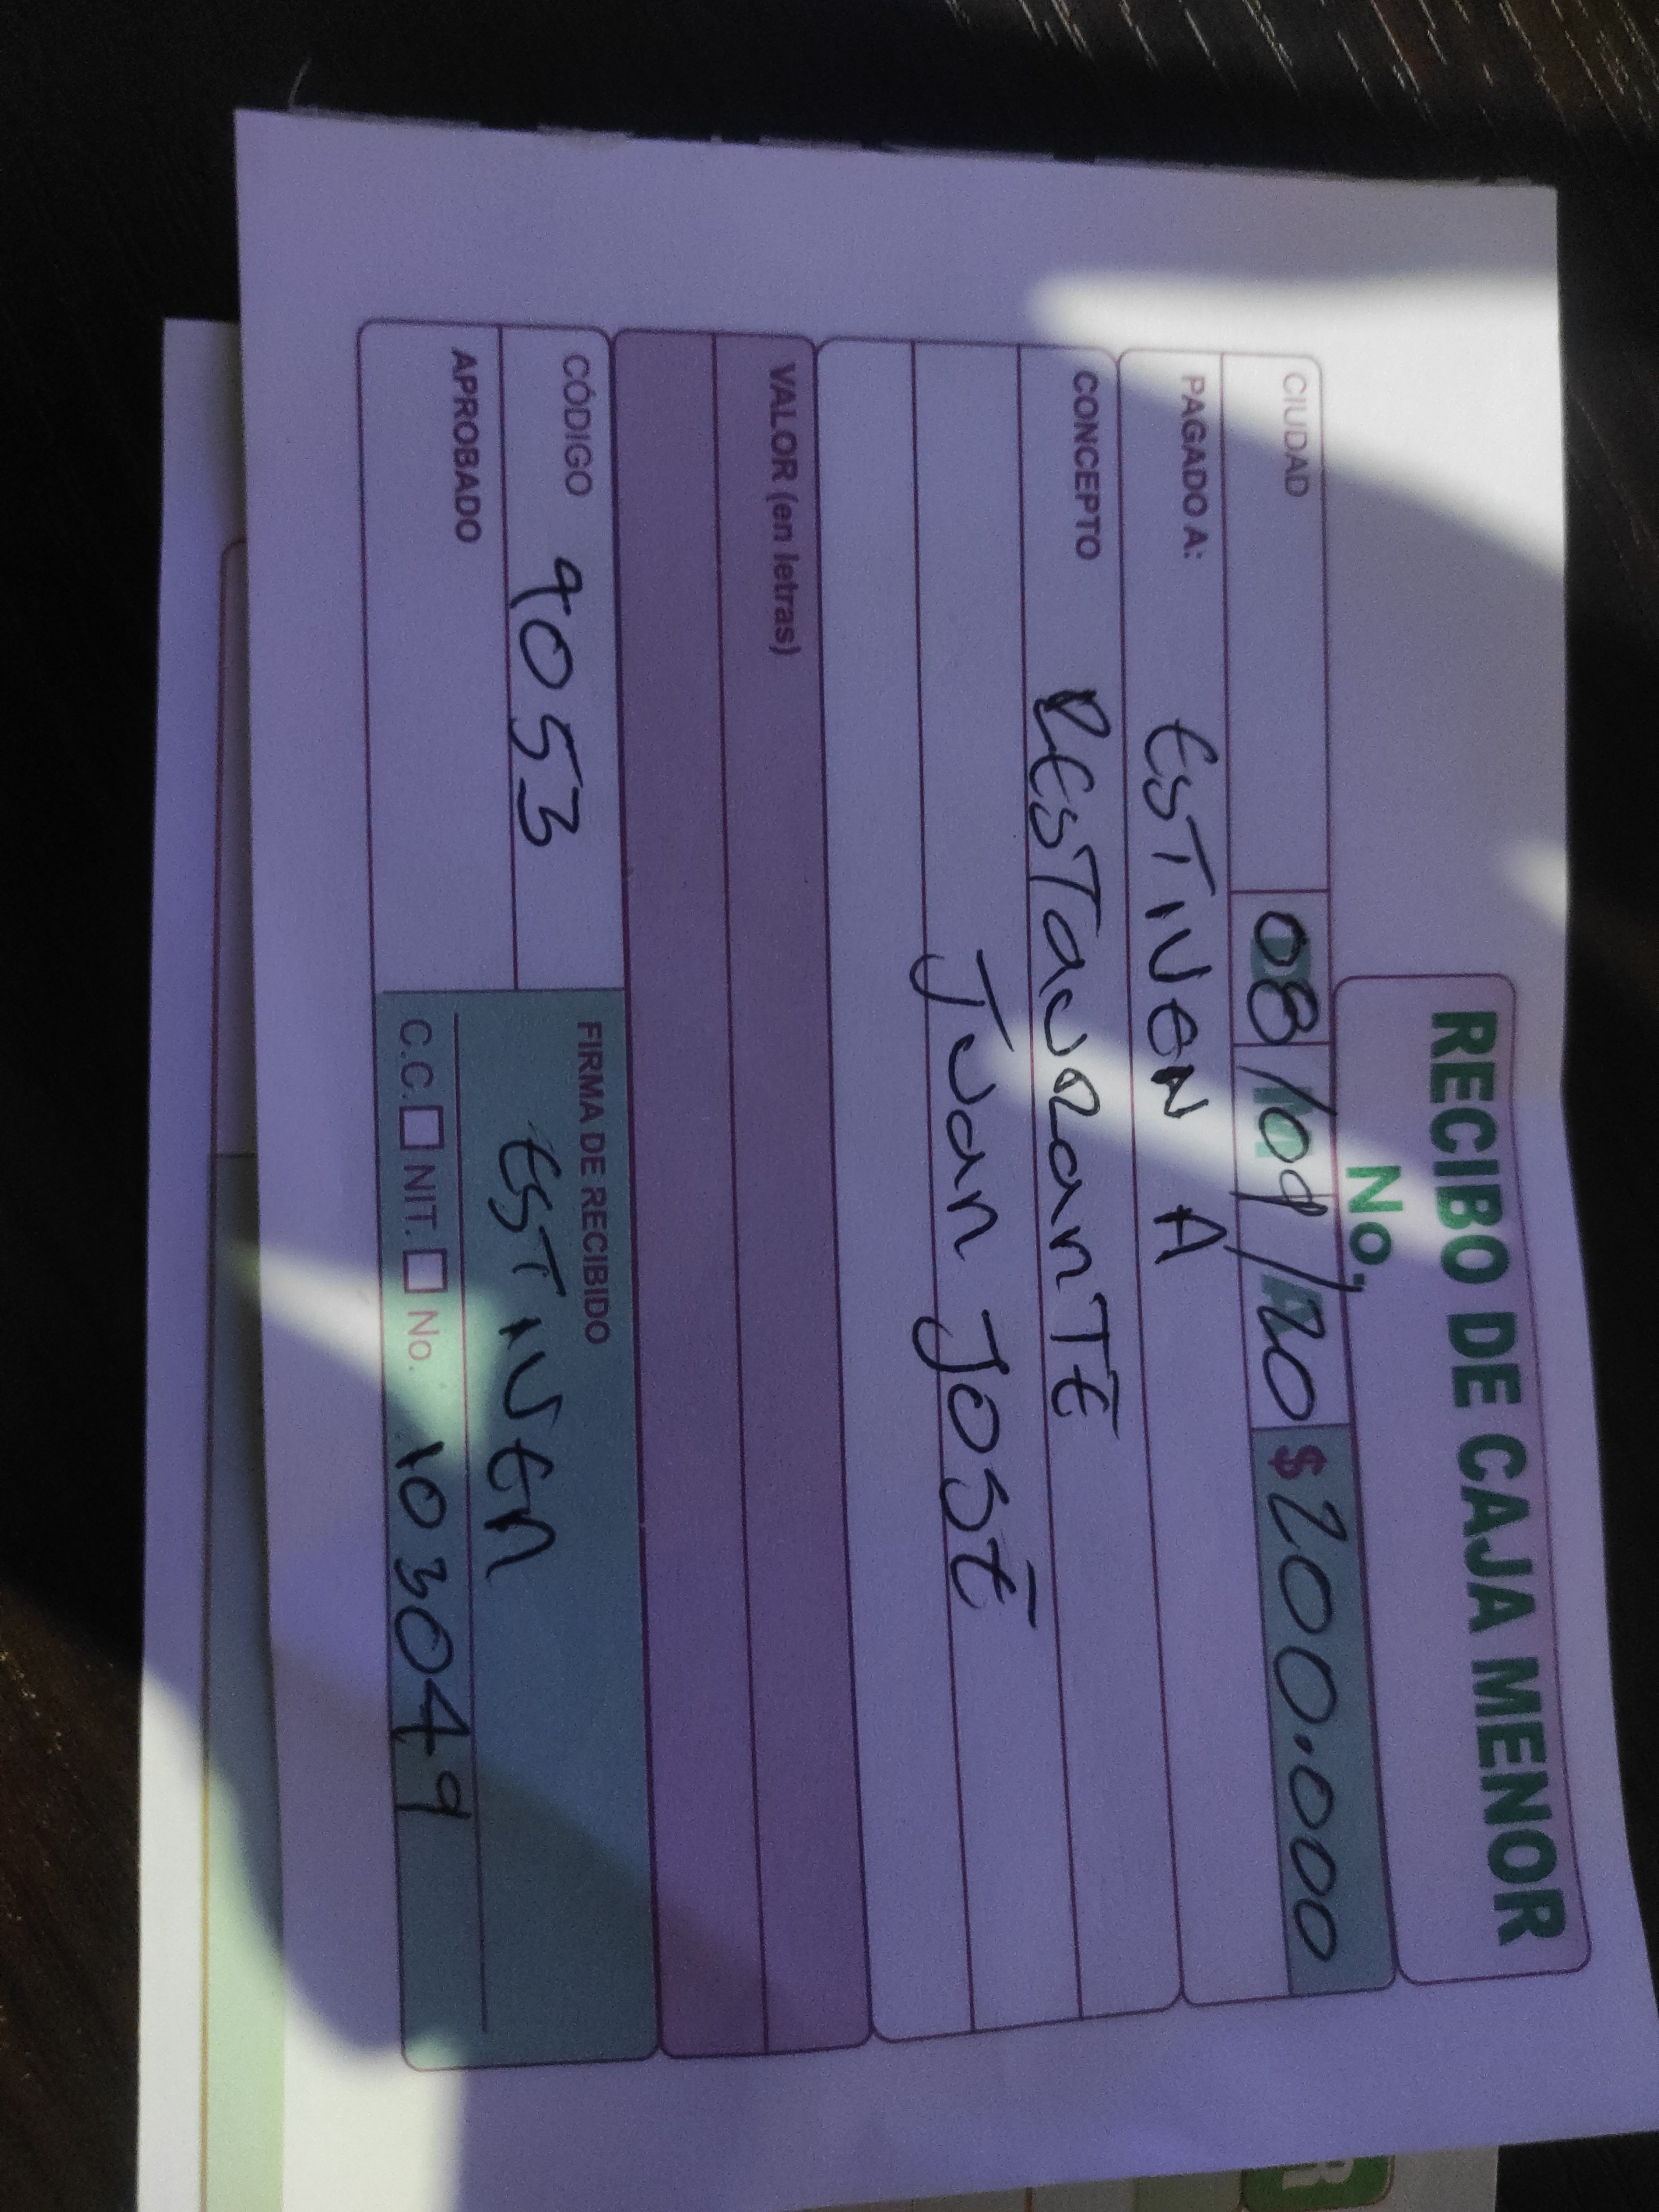 RECIBO DE CAJA MENOR
No.
CIUDAD 08/08/20 $ 200.000
PAGADO A: ESTIVEN A
CONCEPTO RESTAURANTE
JUAN JOSÉ
VALOR (en letras)
CÓDIGO 9053 FIRMA DE RECIBIDO
APROBADO ESTIVEN
C.C. NIT. No. 103049